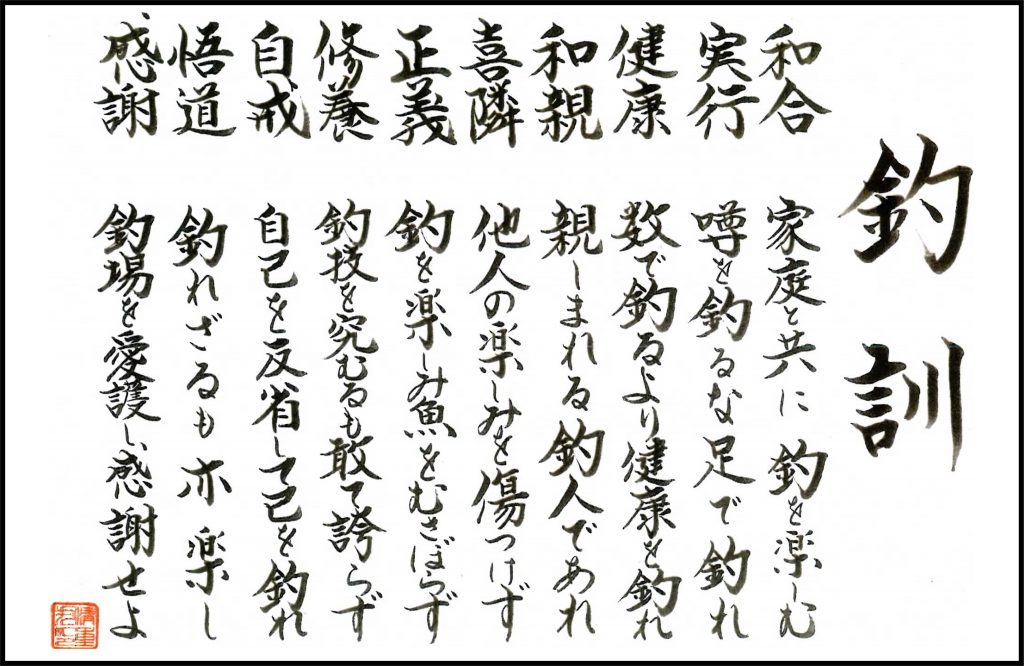 釣訓
和合 家庭と共に 釣を楽しむ
実行 噂を釣るな足で釣れ
健康 数で釣るより健康を釣れ
和親 親しまれる釣人であれ
喜隣 他人の楽しみを傷つけず
正義 釣を楽しみ魚をむさぼらず
修養 釣技を究むるも敢て誇らず
自戒 自己を反省して己を釣れ
悟道 釣れざるも亦楽し
感謝 釣場を愛護し感謝せよ